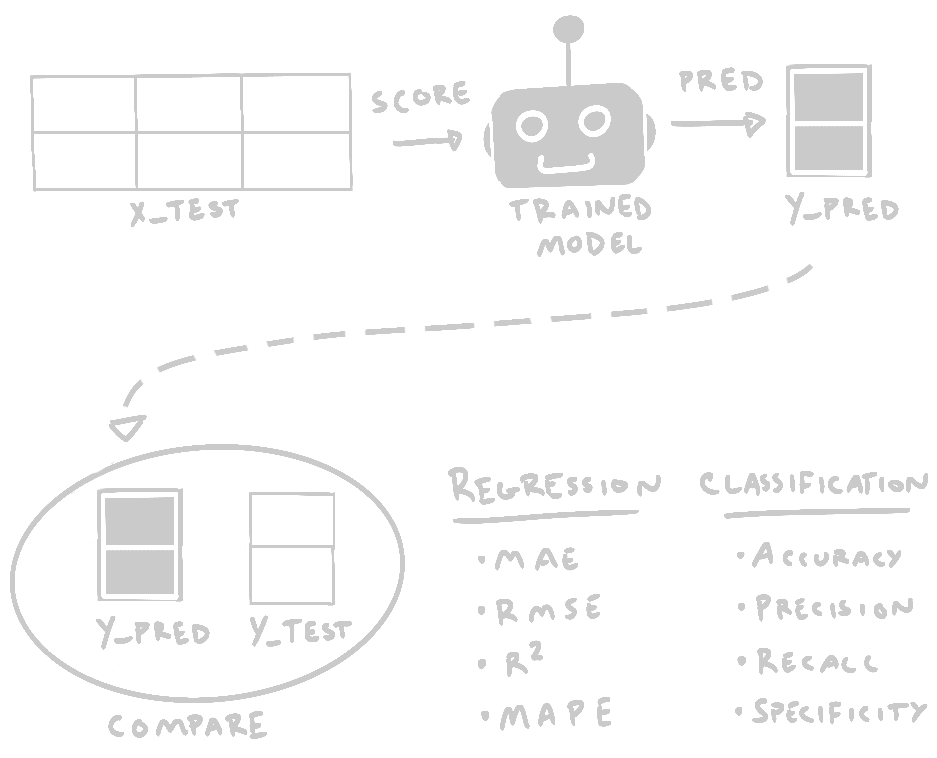 SCORE
PRED
X_TEST
TRAINED
MODEL
Y_PRED
Y_PRED
Y_TEST
COMPARE
REGRESSION
• MAE
• RMSE
• R²
• MAPE
CLASSIFICATION
• ACCURACY
• PRECISION
• RECALL
• SPECIFICITY